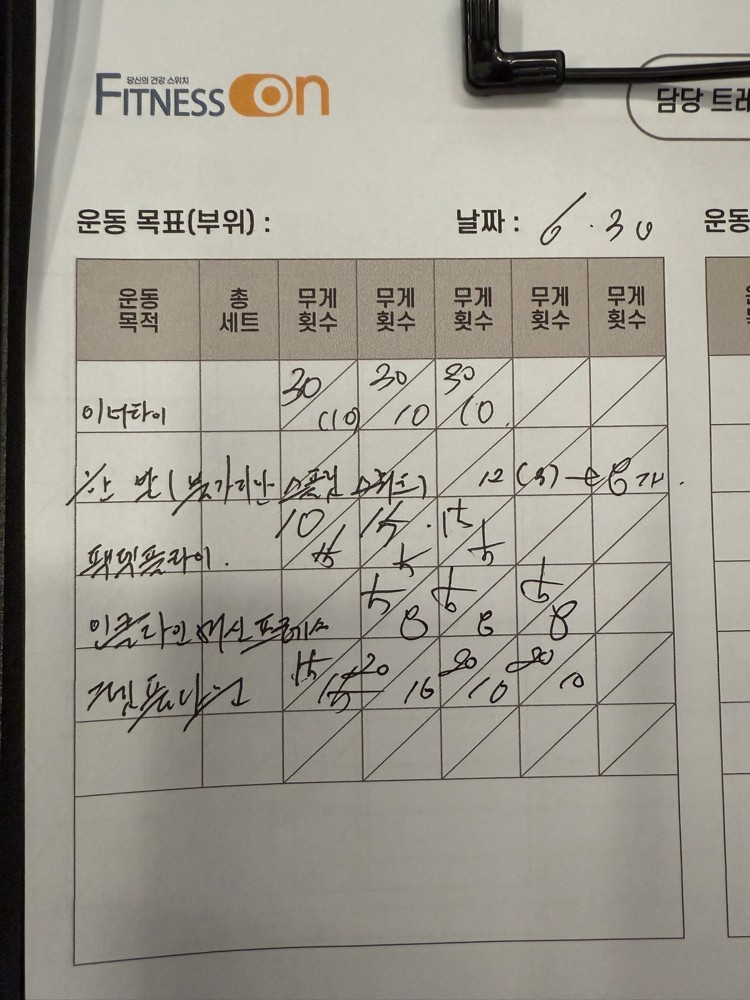 당신의 건강 스위치
FITNESS ON
담당 트레
운동 목표(부위) : 날짜 : 6.30
운동
운동 목적 총 세트 무게 횟수 무게 횟수 무게 횟수 무게 횟수 무게 횟수
이너타이 30 10 30 10 30 10
한 발 (불가리안 스플릿 스쿼트) 12 8개.
팩덱플라이. 10 15 15 . 5 15 5
인클라인 머신 프레스 5 8 5 8 5 8
15 15 20 10 20 10 20 10